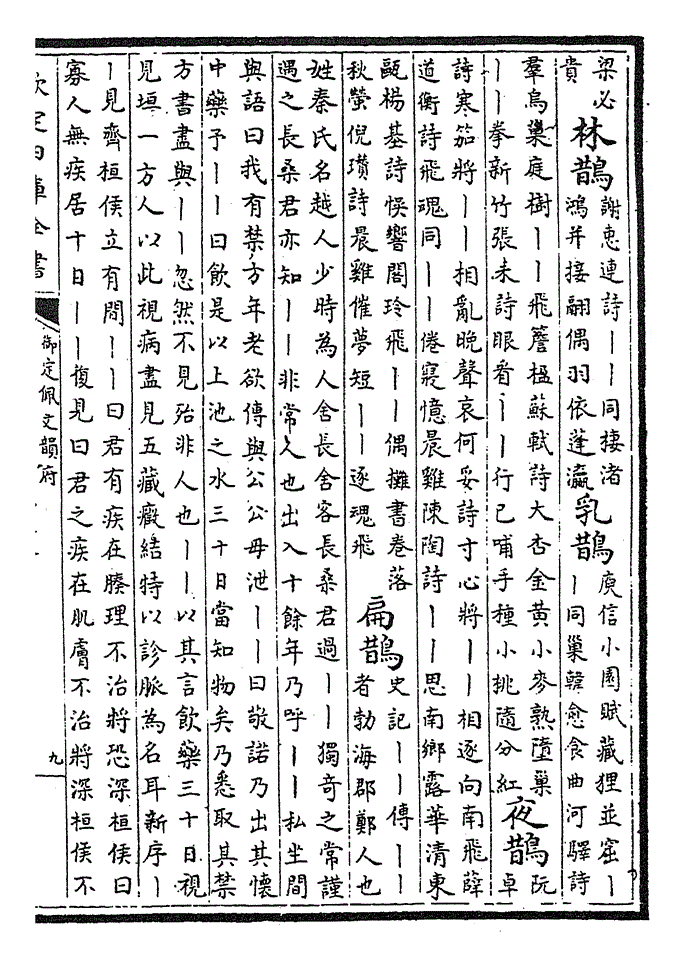 梁必
貴
林鵲
謝惠連詩丨丨同棲渚
鴻并接翮偶羽依蓬瀛
乳鵲
庾信小園賦藏狸並窟丨
丨同巢韓愈食曲河驛詩
羣烏巢庭樹丨丨飛簷楹蘇軾詩大杏金黃小麥熟墮巢
丨丨拳新竹張耒詩眼看丨丨行已哺手種小桃隨分紅
夜鵲
阮
卓
詩寒笳將丨丨相亂晚聲哀何妥詩寸心將丨丨相逐向南飛薛
道衡詩飛魂同丨丨倦寢憶晨雞陳陶詩丨丨思南鄉露華清東
甌楊基詩悞響閣玲飛丨丨偶攤書卷落
秋螢倪瓚詩晨雞催夢短丨丨逐魂飛
扁鵲
史記丨丨傳丨丨
者勃海郡鄭人也
姓秦氏名越人少時為人舍長舍客長桑君過丨丨獨奇之常謹
遇之長桑君亦知丨丨非常人也出入十餘年乃呼丨丨私坐間
與語曰我有禁方年老欲傳與公公毋泄丨丨曰敬諾乃出其懷
中藥予丨丨曰飲是以上池之水三十日當知物矣乃悉取其禁
方書盡與丨丨忽然不見殆非人也丨丨以其言飲藥三十日視
見垣一方人以此視病盡見五藏癥結特以診脈為名耳新序丨
丨見齊桓侯立有間丨丨曰君有疾在腠理不治將恐深桓侯曰
寡人無疾居十日丨丨復見曰君之疾在肌膚不治將深桓侯不
欽定四庫全書
御定佩文韻府
九